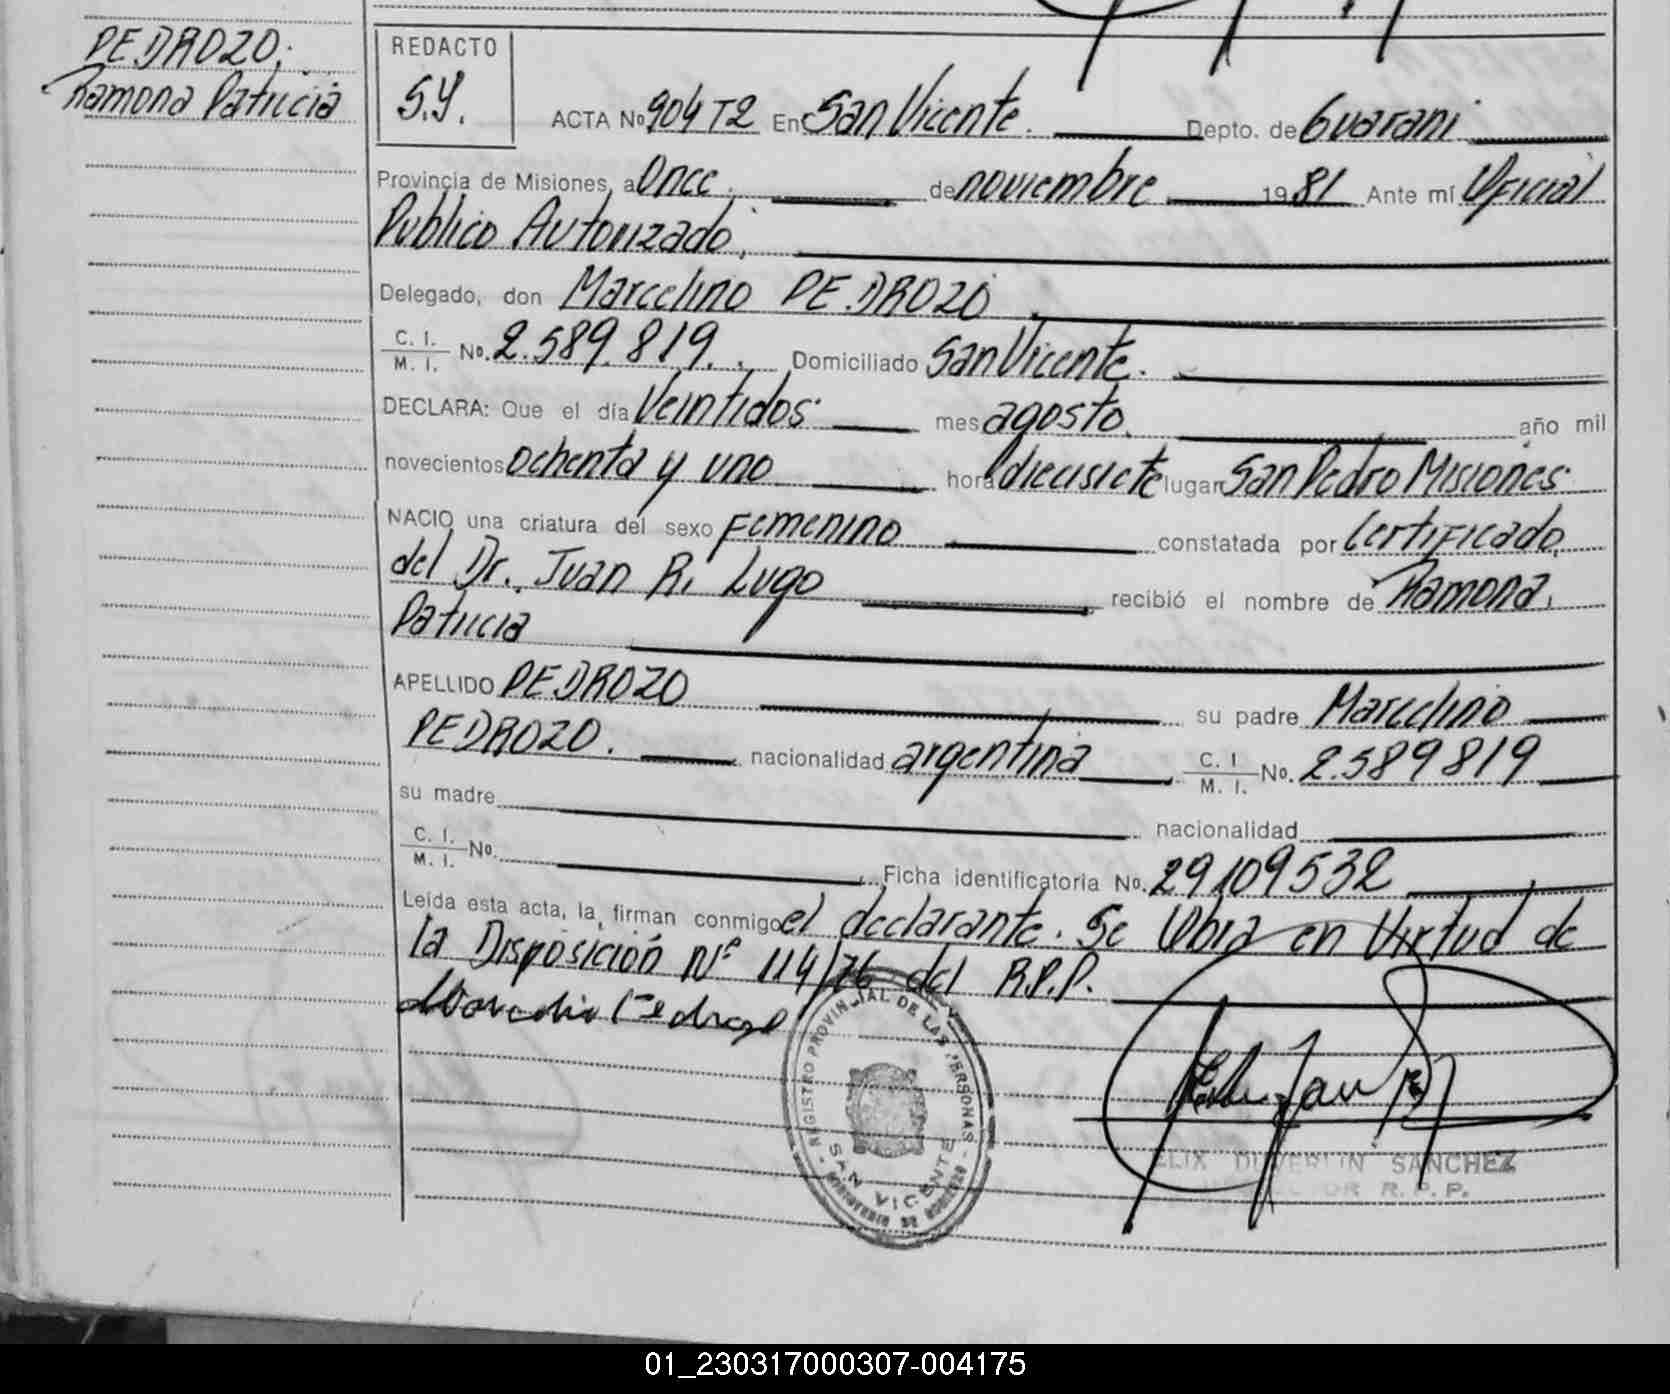 PEDROZO.
Ramona Patricia
REDACTO
S.Y.
ACTA No 904 T2 En San Vicente. Depto. de Guarani
Provincia de Misiones, a Once. de noviembre 1981 Ante mí Oficial
Publico Autorizado,
Delegado, don Marcelino PEDROZO
C. I.
M. I. No. 2.589.819. Domiciliado San Vicente.
DECLARA: Que el día Veintidos mes agosto. año mil
novecientos ochenta y uno hora diecisiete lugar San Pedro Misiones
NACIO una criatura del sexo Femenino constatada por Certificado
del Dr. Juan R. Lugo recibió el nombre de Ramona
Patricia
APELLIDO PEDROZO su padre Marcelino
PEDROZO. nacionalidad argentina C. I.
M. I. No. 2.589819
su madre nacionalidad
C. I.
M. I. No. Ficha identificatoria No. 29109532
Leída esta acta, la firman conmigo el declarante. Se Obra en Virtud de
la Disposición Nº 114/76 del R.P.P.
Marcelino Pedrozo
REGISTRO PROVINCIAL DE LAS PERSONAS
SAN VICENTE
MINISTERIO DE GOBIERNO
SANCHEZ
R. P. P.
01_230317000307-004175